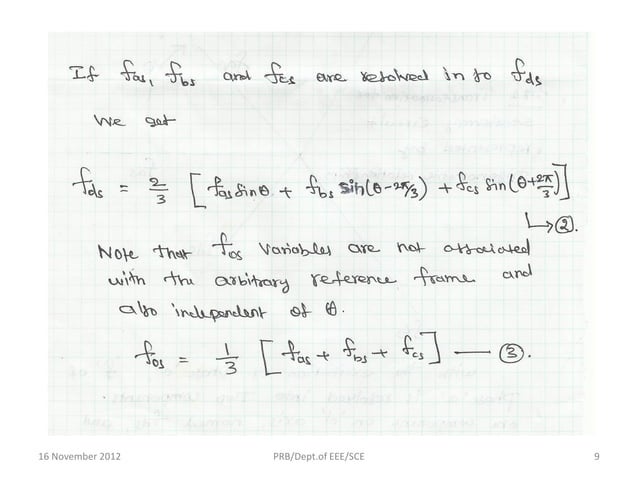 If fas, fbs and fcs are resolved in to fds
we get
fds = 2/3 [fas sinθ + fbs sin(θ-2π/3) + fcs sin(θ+2π/3)]
↳ ②.
Note that fos variables are not associated
with the arbitrary reference frame and
also independent of θ.
fos = 1/3 [fas + fbs + fcs] — ③.
16 November 2012 PRB/Dept.of EEE/SCE 9